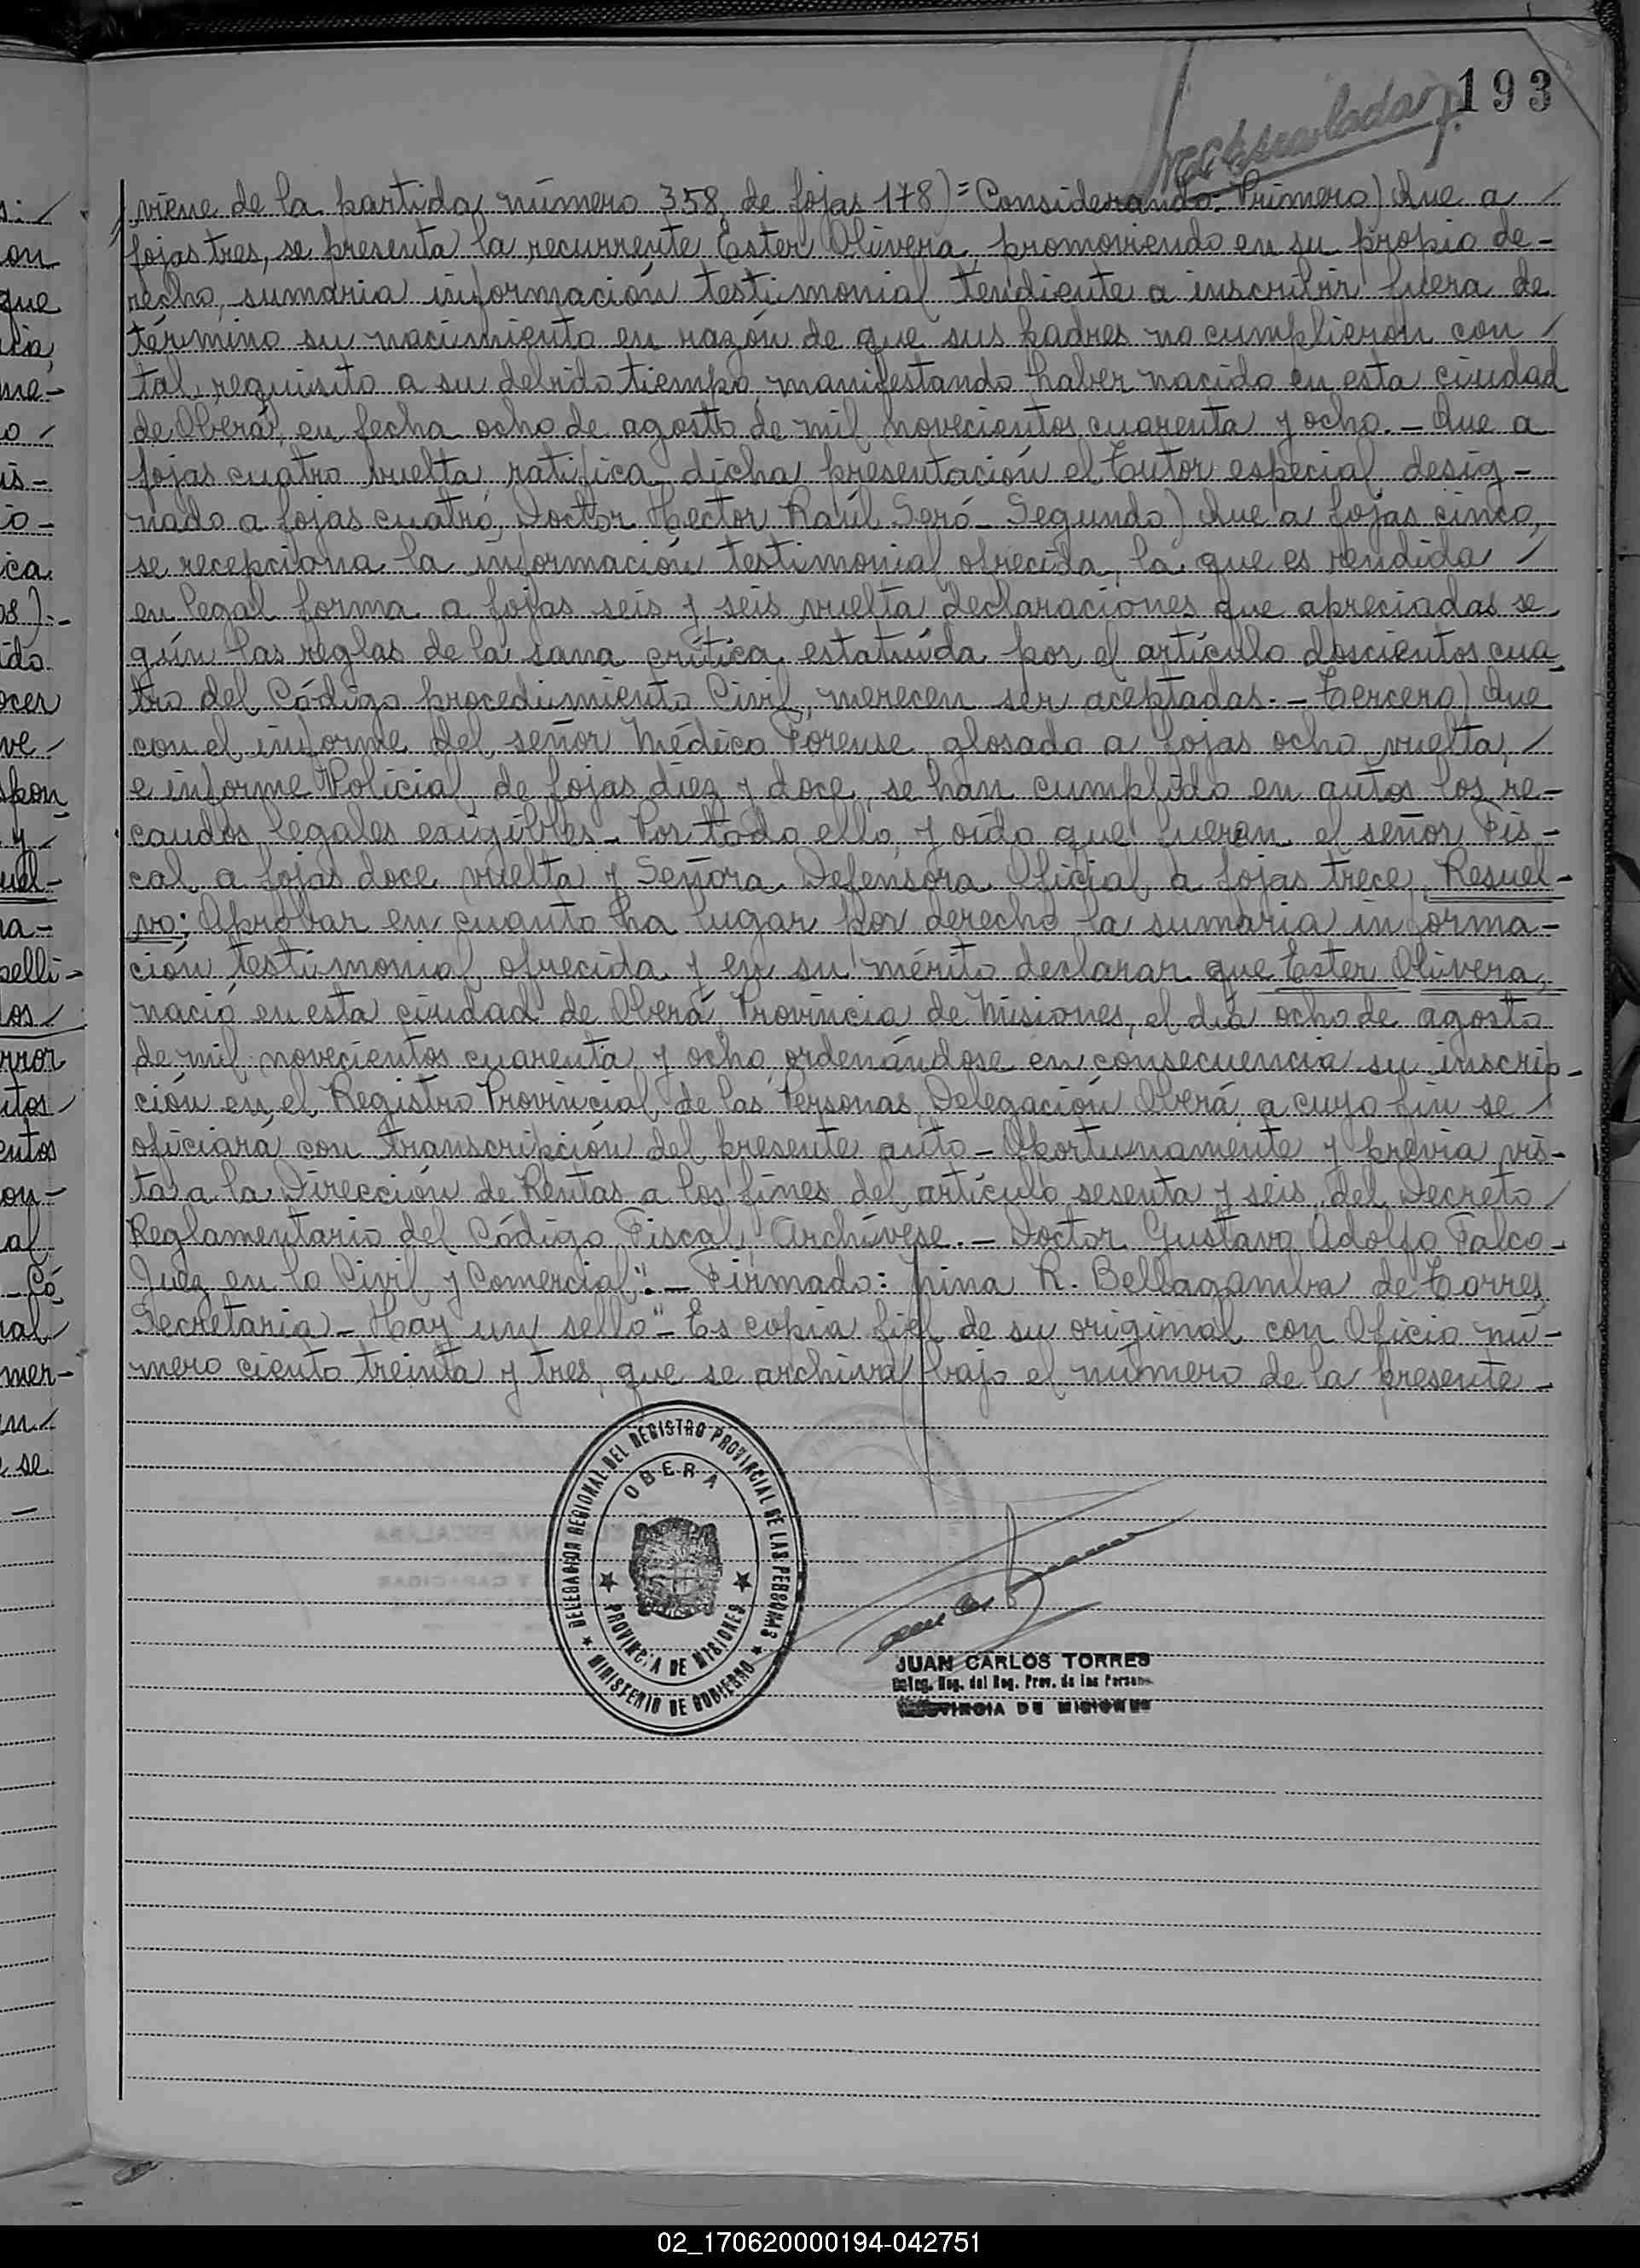 193
viene de la partida número 358, de fojas 178)= Considerando: Primero) Que a /
fojas tres, se presenta la recurrente Ester Olivera, promoviendo en su propio de-
recho, sumaria información testimonial tendiente a inscribir fuera de
término su nacimiento en razón de que sus padres no cumplieron con /
tal requisito a su debido tiempo, manifestando haber nacido en esta ciudad
de Oberá, en fecha ocho de agosto de mil novecientos cuarenta y ocho.- Que a
fojas cuatro vuelta, ratifica dicha presentación el Tutor especial desig-
nado a fojas cuatro, Doctor Hector Raúl Seró- Segundo) Que a fojas cinco,
se recepciona la información testimonial ofrecida, la que es rendida /
en legal forma a fojas seis y seis vuelta declaraciones que apreciadas se-
gún las reglas de la sana crítica estatuída por el artículo doscientos cua-
tro del Código procedimiento Civil, merecen ser aceptadas.- Tercero) Que
con el informe del señor Médico Forense glosado a fojas ocho vuelta, /
e informe Policial de fojas diez y doce, se han cumplido en autos los re-
caudos legales exigibles- Por todo ello, y oído que fueran el señor Fis-
cal a fojas doce vuelta y Señora Defensora Oficial a fojas trece, Resuel-
vo: Aprobar en cuanto ha lugar por derecho la sumaria informa-
ción testimonial ofrecida y en su mérito declarar que Ester Olivera,
nació en esta ciudad de Oberá Provincia de Misiones, el día ocho de agosto
de mil novecientos cuarenta y ocho, ordenándose en consecuencia su inscrip-
ción en el Registro Provincial de las Personas, Delegación Oberá a cuyo fin se /
oficiará con transcripción del presente auto- Oportunamente y previa vis-
ta a la Dirección de Rentas a los fines del artículo sesenta y seis, del Decreto /
Reglamentario del Código Fiscal, Archívese.- Doctor Gustavo Adolfo Falco-
Juez en lo Civil y Comercial".- Firmado: Nina R. Bellagamba de Torres
Secretaria- Hay un sello"- Es copia fiel de su original con Oficio nú-
mero ciento treinta y tres, que se archiva bajo el número de la presente-
DELEGACION REGIONAL DEL REGISTRO PROVINCIAL DE LAS PERSONAS
OBERA
PROVINCIA DE MISIONES
MINISTERIO DE GOBIERNO
JUAN CARLOS TORRES
Deleg. Reg. del Reg. Prov. de las Personas
PROVINCIA DE MISIONES
02_170620000194-042751